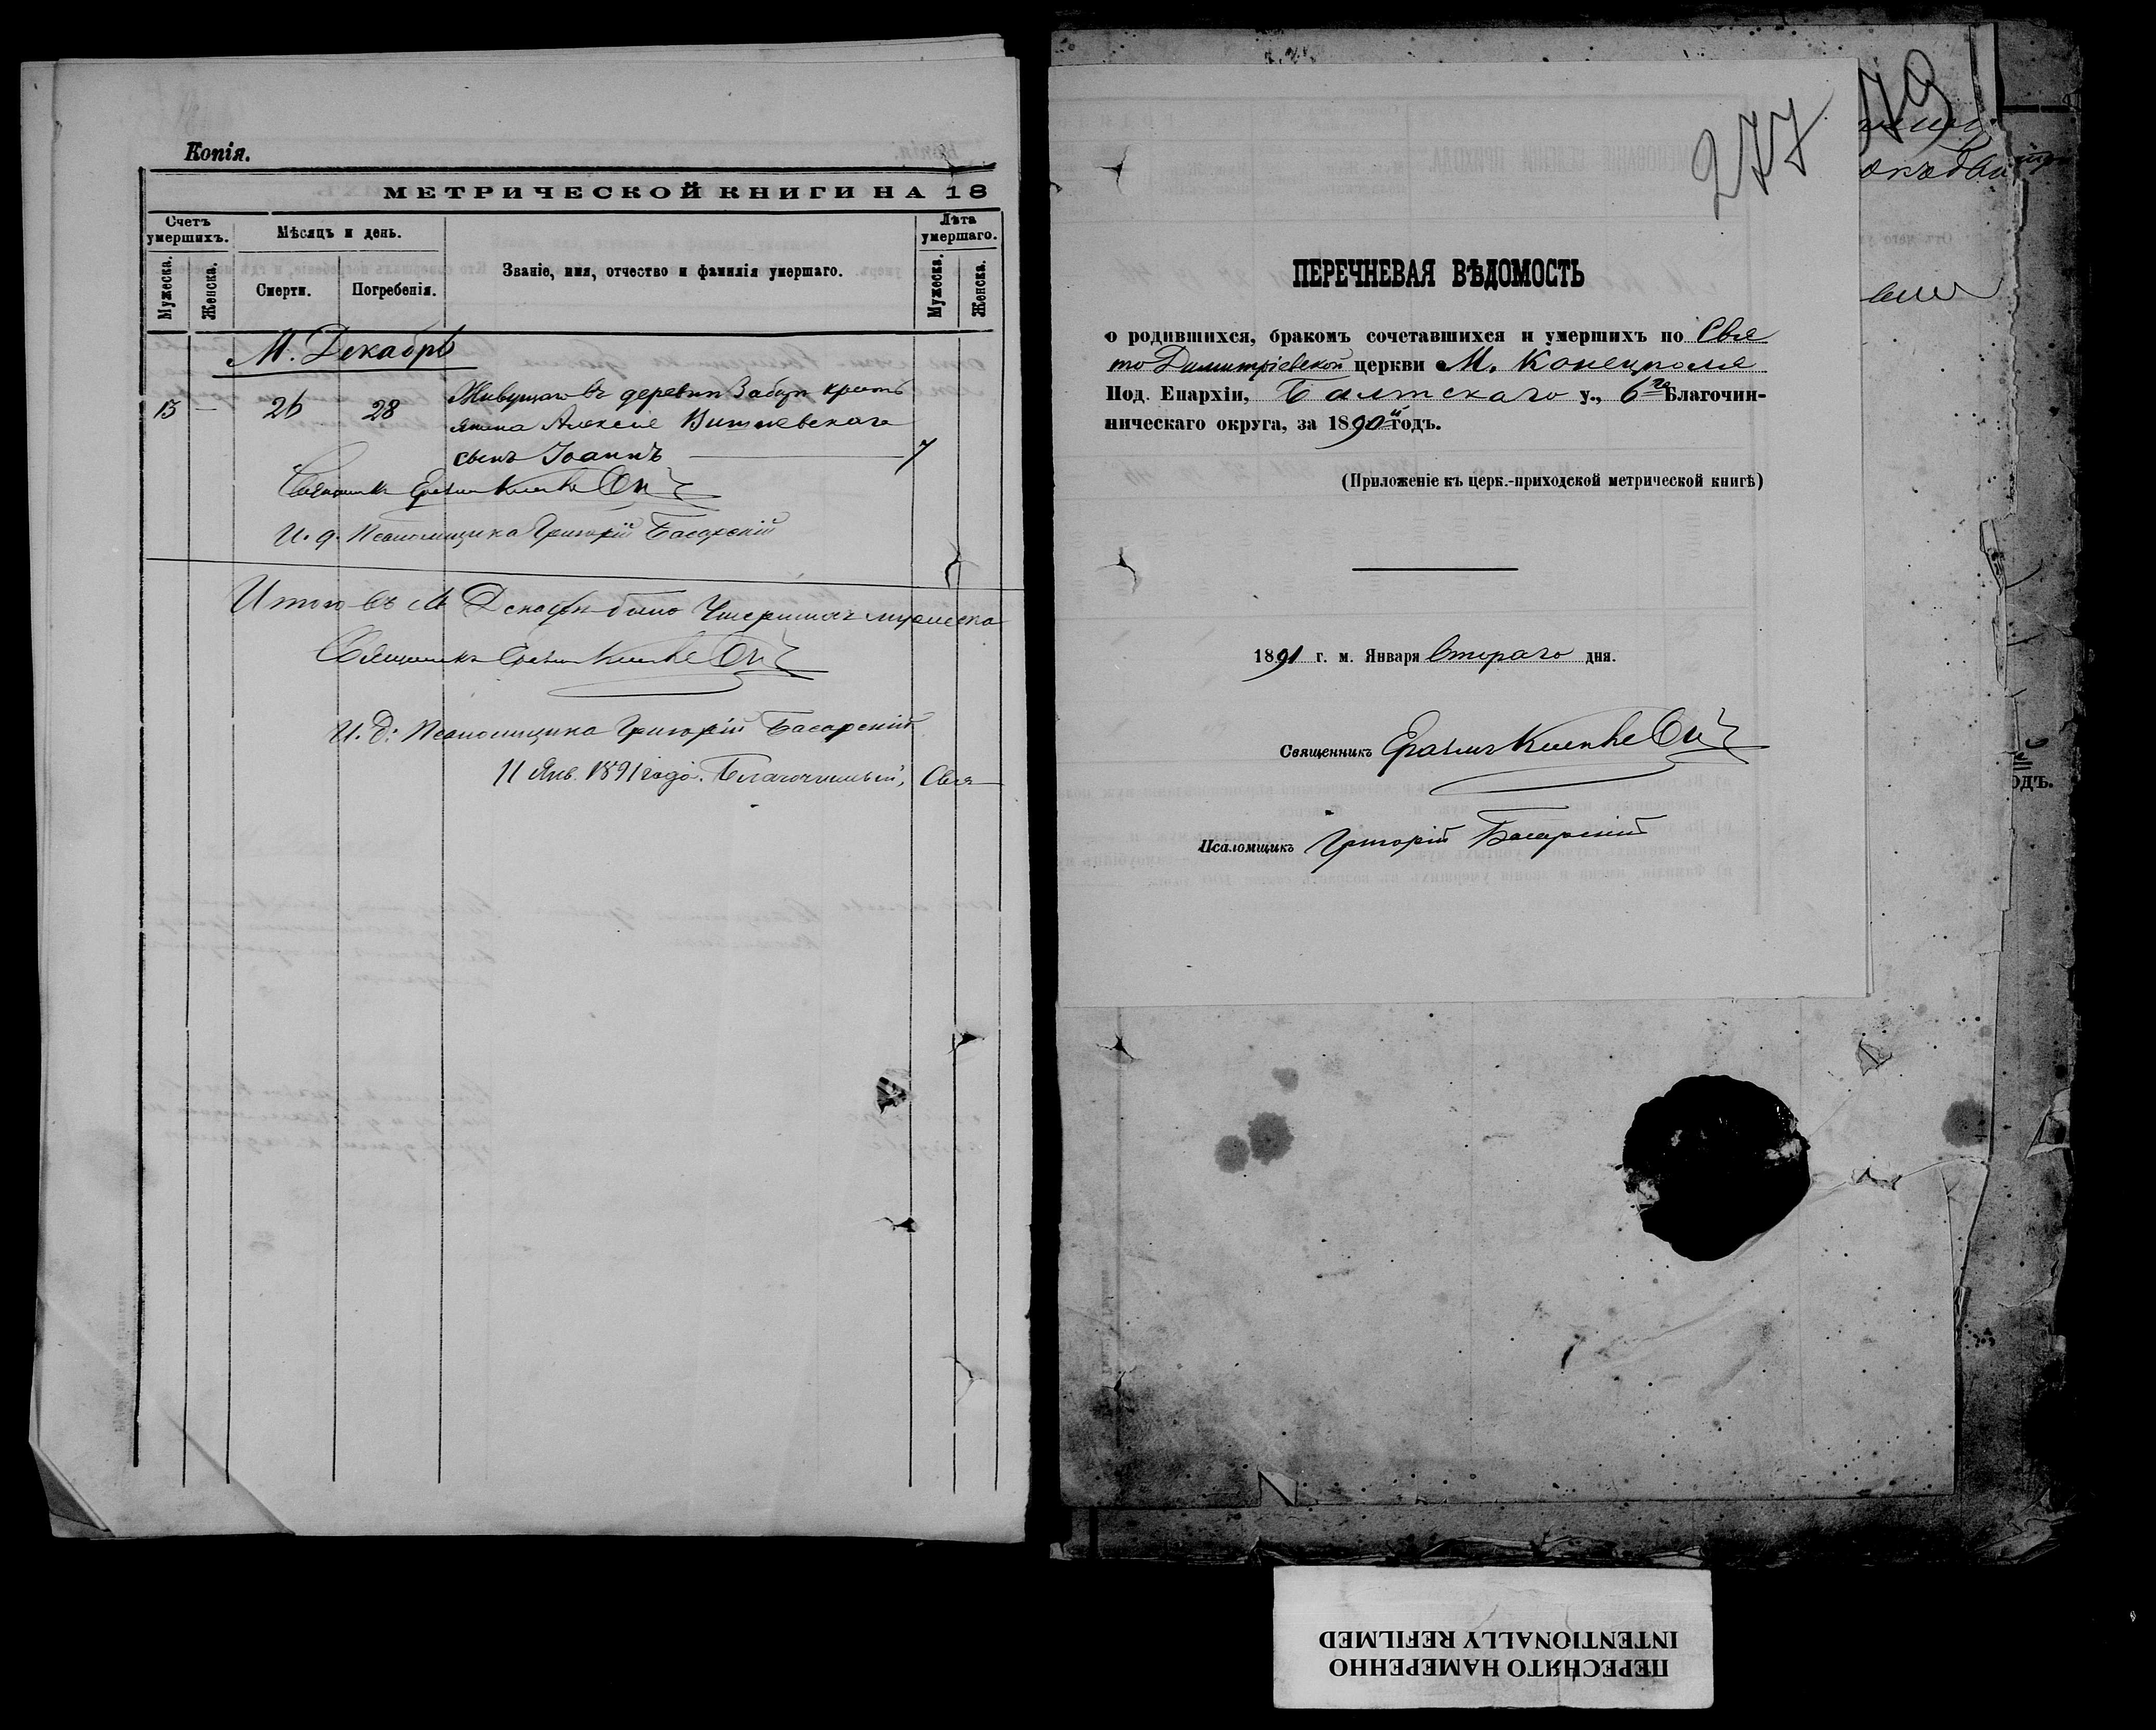 Копія.
МЕТРИЧЕСКОЙ КНИГИ НА 18
Счетъ умершихъ.
Мѣсяцъ и день.
Званіе, имя, отчество и фамилія умершаго.
Лѣта умершаго.
Мужеска.
Женска.
Смерти.
Погребенія.
Мужеска.
Женска.
М. Декабрь
13 — 26 28 Живущаго въ деревни крестъ
янина Алексѣя Вишневскаго
сынъ Іоаннъ — 7
Священникъ
И. д. Псаломщика Григорій Басарскій
Итого въ М Декабрѣ было Умершихъ мужеска
Священникъ
И. д: Псаломщика Григорій Басарскій
11 Янв. 1891 года. Благочинный, Свя
277
79
ПЕРЕЧНЕВАЯ ВѢДОМОСТЬ
о родившихся, бракомъ сочетавшихся и умершихъ по Свя
то Димитріевской церкви М. Конецполя
Под. Епархіи, Балтскаго у., 6го Благочин-
ническаго округа, за 1890й годъ.
(Приложеніе къ церк.-приходской метрической книгѣ)
1891 г. м. Января Втораго дня.
Священникъ
Псаломщикъ Григорій Басарскій
одъ.
ПЕРЕСНЯТО НАМЕРЕННО
INTENTIONALLY REFILMED